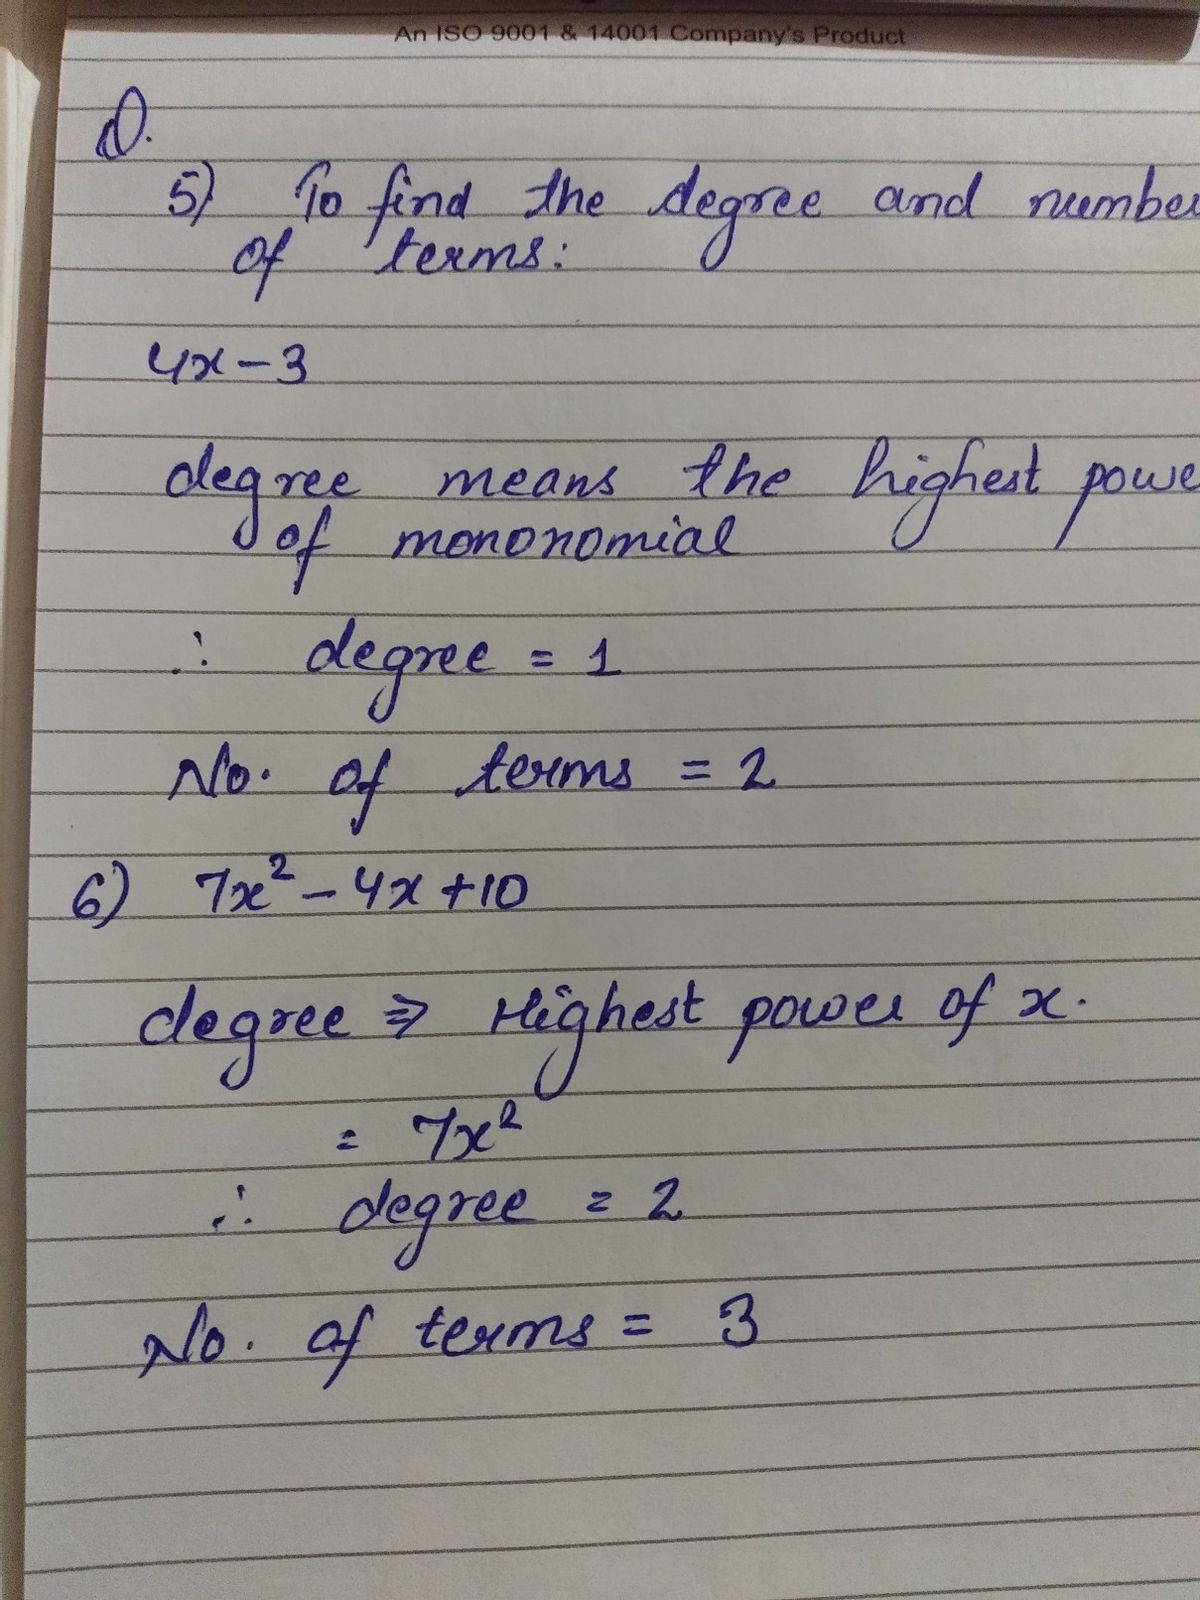 An ISO 9001 & 14001 Company's Product
D.
5) To find the degree and number
of terms:
4x - 3
degree means the highest powe
of mononomial
∴ degree = 1
No. of terms = 2
6) 7x² - 4x + 10
degree ⇒ Highest power of x.
= 7x²
∴ degree = 2
No. of terms = 3